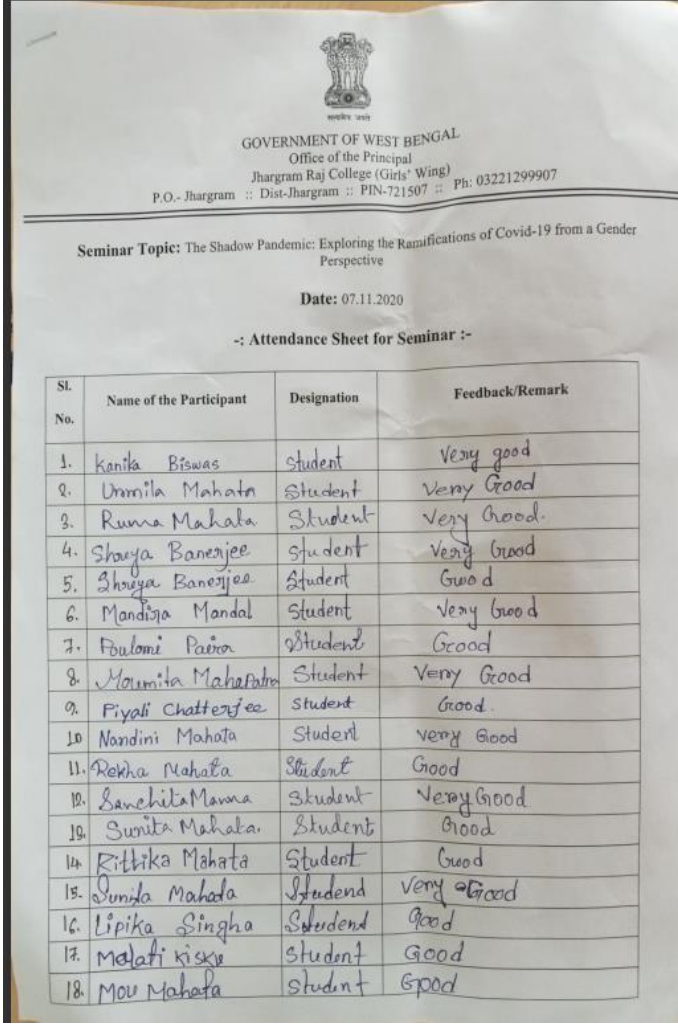 सत्यमेव जयते
GOVERNMENT OF WEST BENGAL
Office of the Principal
Jhargram Raj College (Girls' Wing)
P.O.- Jhargram :: Dist-Jhargram :: PIN-721507 :: Ph: 03221299907
Seminar Topic: The Shadow Pandemic: Exploring the Ramifications of Covid-19 from a Gender
Perspective
Date: 07.11.2020
-: Attendance Sheet for Seminar :-
Sl. No. Name of the Participant Designation Feedback/Remark
1. Kanika Biswas Student Very good
2. Urmila Mahata Student Very Good
3. Ruma Mahata. Student Very Good.
4. Shreya Banerjee Student Very Good
5. Shreya Banerjee Student Good
6. Mandira Mandal Student Very Good
7. Poulomi Paira Student Good
8. Moumita Mahapatra Student Very Good
9. Piyali Chatterjee Student Good.
10 Nandini Mahata Student Very Good
11. Rekha Mahata Student Good
12. Sanchita Manna Student Very Good
13. Sunita Mahata. Student Good
14. Rittika Mahata Student Good
15. Sunita Mahata Studend Very Good
16. Lipika Singha Studend good
17. Malati Kisku Student Good
18. Mou Mahata Student Good